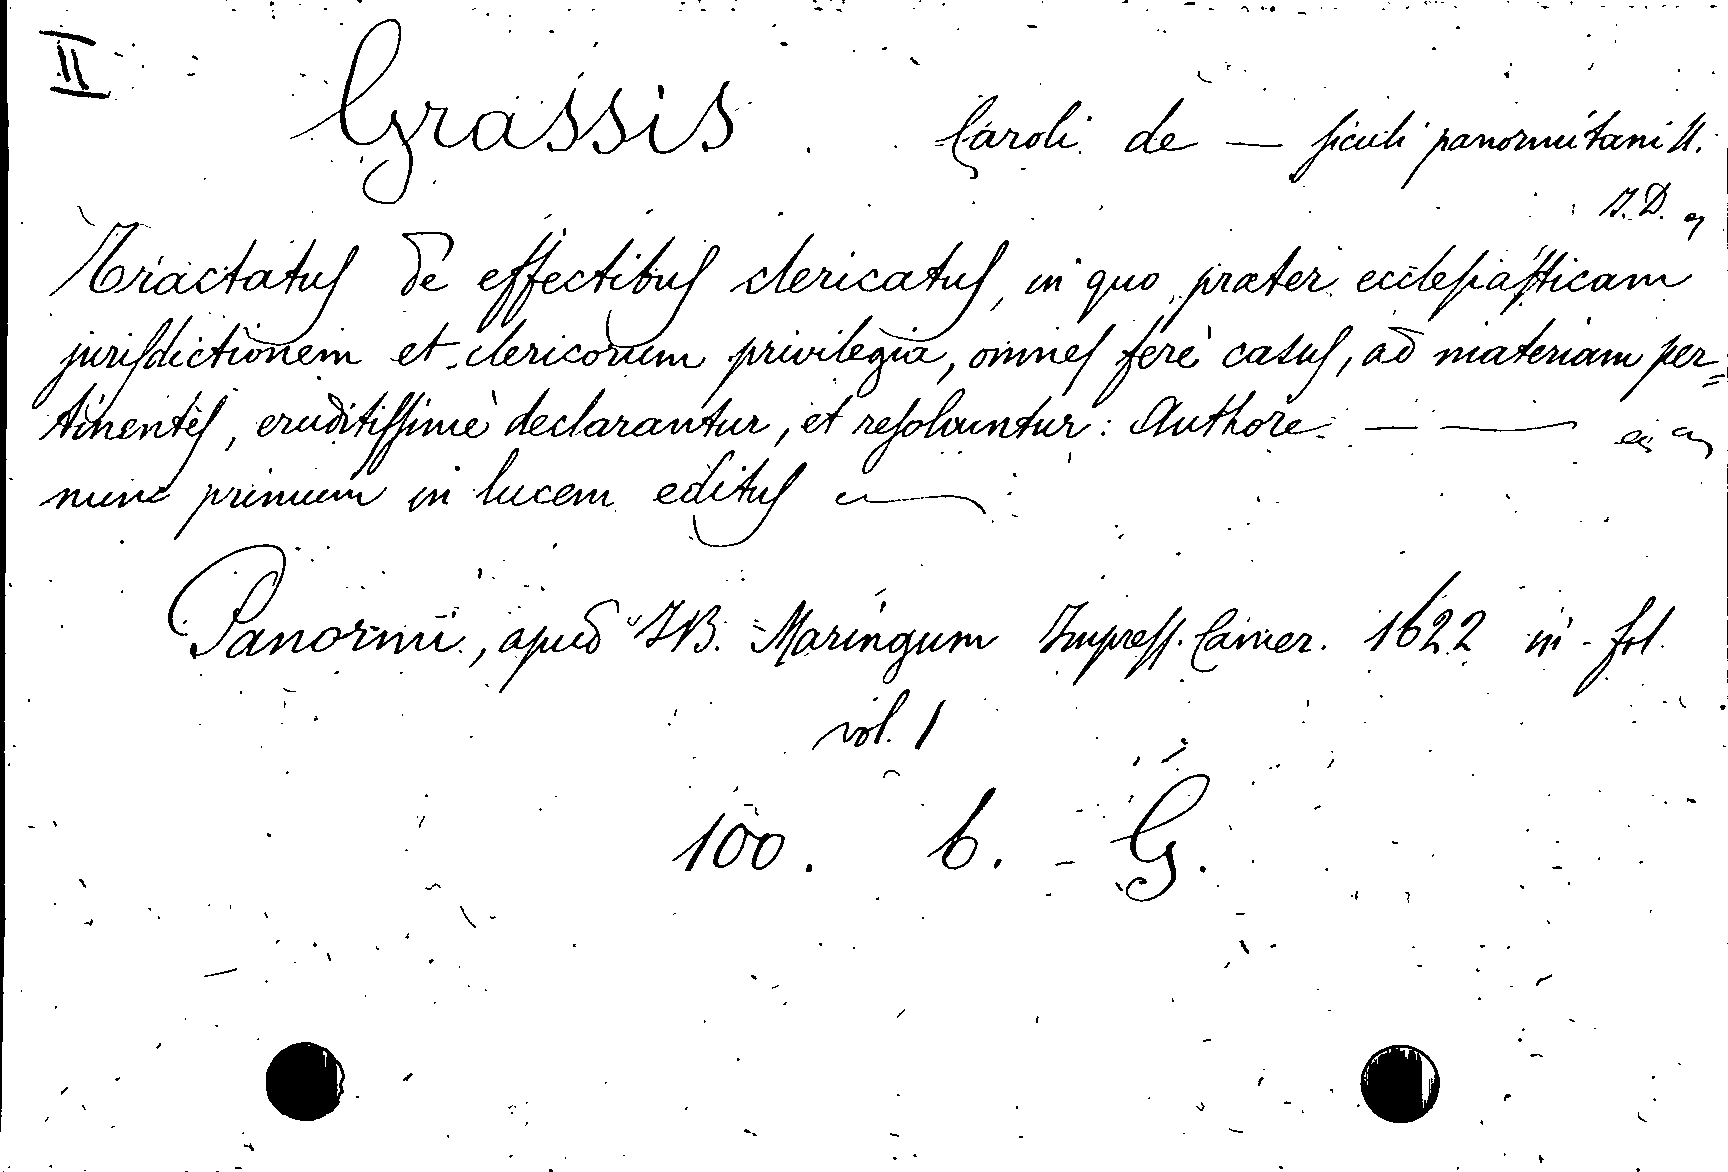 II
Grassis. Caroli de — siculi panormitani U.
J. D.
Tractatus de effectibus clericatus, in quo praeter ecclesiasticam
jurisdictionem et clericorum privilegia, omnes ferè casus, ad materiam per=
tinentes, eruditissimè declarantur, et resolvuntur: Authore — —
nunc primum in lucem editus
Panormi, apud J.B. Maringum Impress. Camer. 1622 in-fol.
vol. 1
100. b. - G.